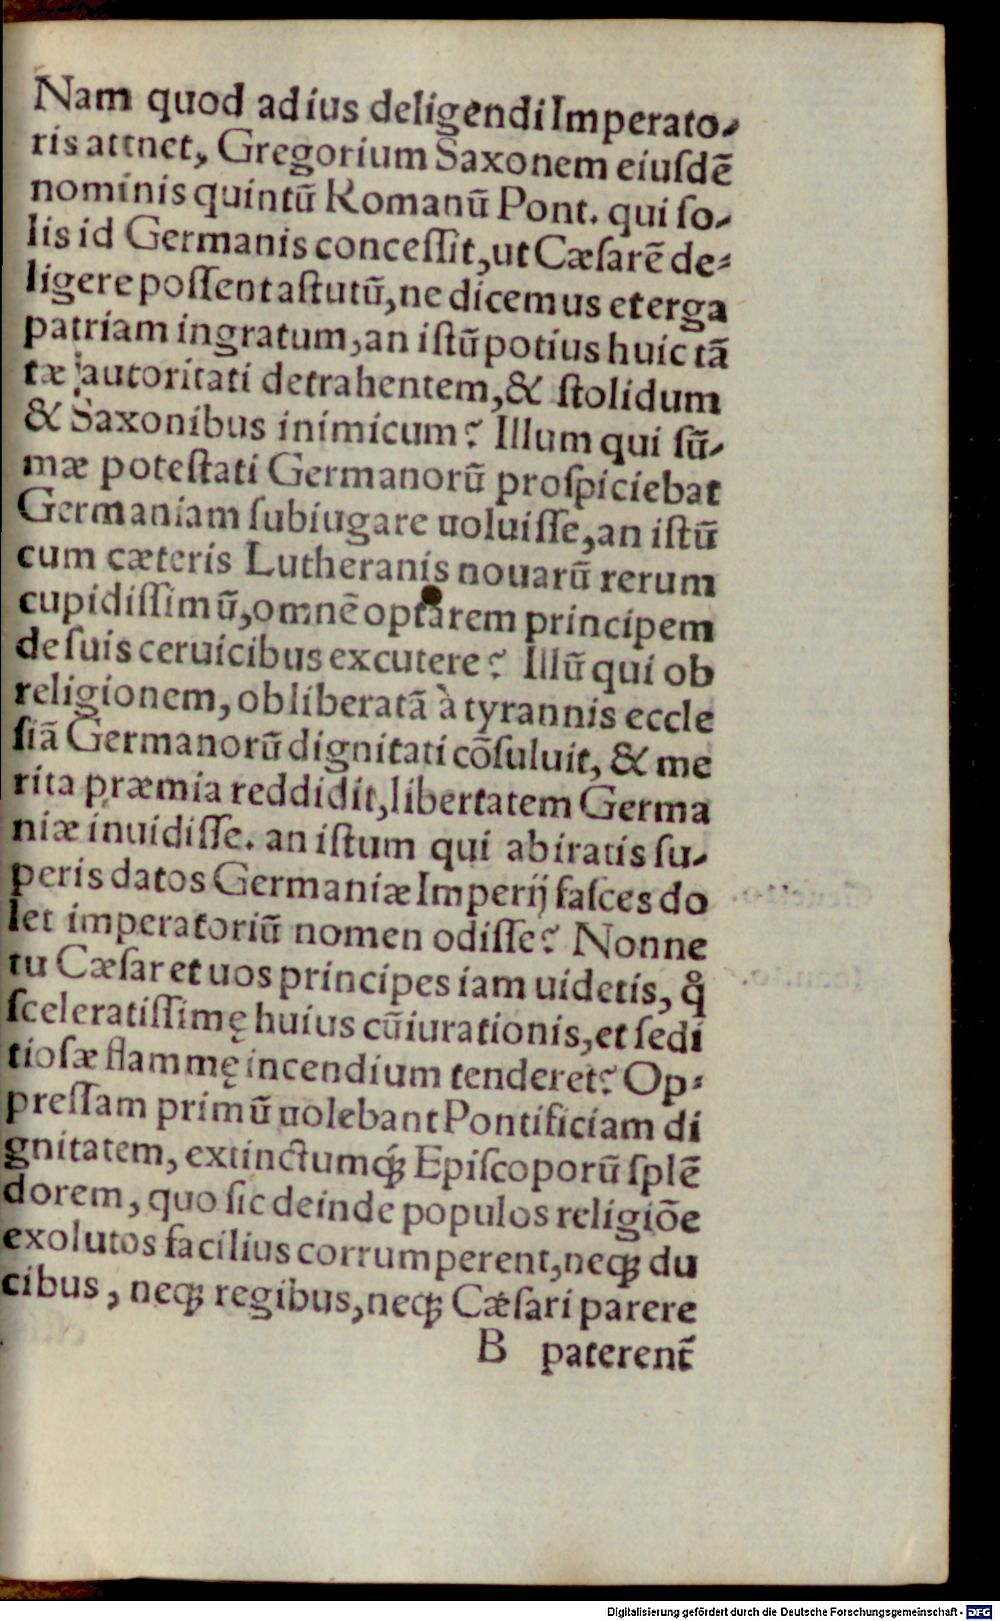 Nam quod ad ius deligendi Imperato-
ris attnet, Gregorium Saxonem eiuſdē
nominis quintū Romanū Pont. qui ſo-
lis id Germanis conceſſit, ut Cæſarē de-
ligere poſſent aſtutū, ne dicemus et erga
patriam ingratum, an iſtū potius huic tā
tæ autoritati detrahentem, & ſtolidum
& Saxonibus inimicum? Illum qui ſū-
mæ poteſtati Germanorū proſpiciebat
Germaniam ſubiugare uoluiſſe, an iſtū
cum cæteris Lutheranis nouarū rerum
cupidiſſimū, omnē optarem principem
de ſuis ceruicibus excutere? Illū qui ob
religionem, ob liberatā à tyrannis eccle
ſiā Germanorū dignitati cōſuluit, & me
rita præmia reddidit, libertatem Germa
niæ inuidiſſe. an iſtum qui ab iratis ſu-
peris datos Germaniæ Imperij faſces do
let imperatoriū nomen odiſſe? Nonne
tu Cæſar et uos principes iam uidetis, qͦ
ſceleratiſſimę huius cūiurationis, et ſedi
tioſæ flammę incendium tenderet? Op-
preſſam primū uolebant Pontificiam di
gnitatem, extinctumqꝫ Epiſcoporū ſplē
dorem, quo ſic deinde populos religiōe
exolutos facilius corrumperent, neqꝫ du
cibus, neqꝫ regibus, neqꝫ Cæſari parere
B paterent᷑
Digitalisierung gefördert durch die Deutsche Forschungsgemeinschaft - DFG